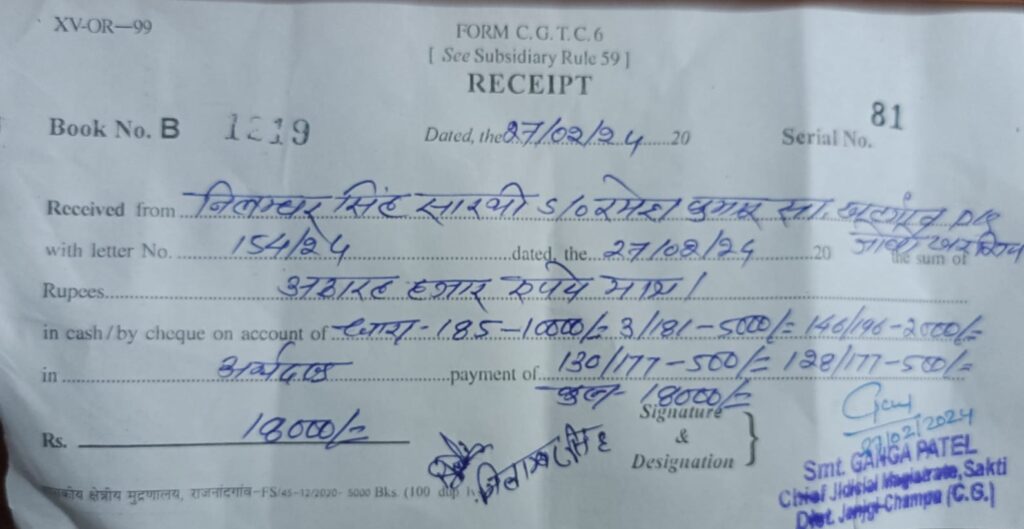 XV-OR—99
FORM C.G.T.C.6
[ See Subsidiary Rule 59 ]
RECEIPT
Book No. B 1219 Dated, the 27/02/24 20 Serial No. 81
Received from निलम्बर सिंह सारथी S/o रमेश कुमार सा.
with letter No. 154/24 dated, the 27/02/24 20 the sum of
Rupees अठारह हजार रुपये मात्र।
in cash/by cheque on account of धारा-185-10000/= 3/181-5000/= 146/196-2000/=
in अर्थदण्ड payment of 130/177-500/= 128/177-500/=
कुल- 18000/=
Rs. 18000/=
Signature
&
Designation
27/02/2024
Smt. GANGA PATEL
Chief Jidicial Magistrate, Sakti
Dist. Janjgir-Champa (C.G.)
क्षेत्रीय मुद्रणालय, राजनांदगांव-FS/45-12/2020- 5000 Bks. (100